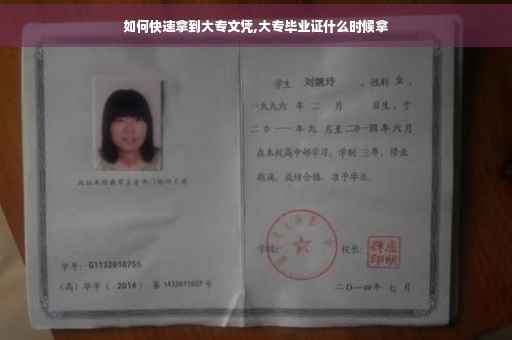 如何快速拿到大专文凭,大专毕业证什么时候拿
学生 刘婉玲 ,性别 女 ,
一九九六 年 二 月 日生,于
二〇一一 年 九 月至 二〇一四 年 六 月
在本校高中部学习,学制 三 年,修业
期满,成绩合格,准予毕业。
学号: G1132010755
(高)毕字( 2014 )第 1432011027 号
学校:
校长:
二〇一四年 七 月